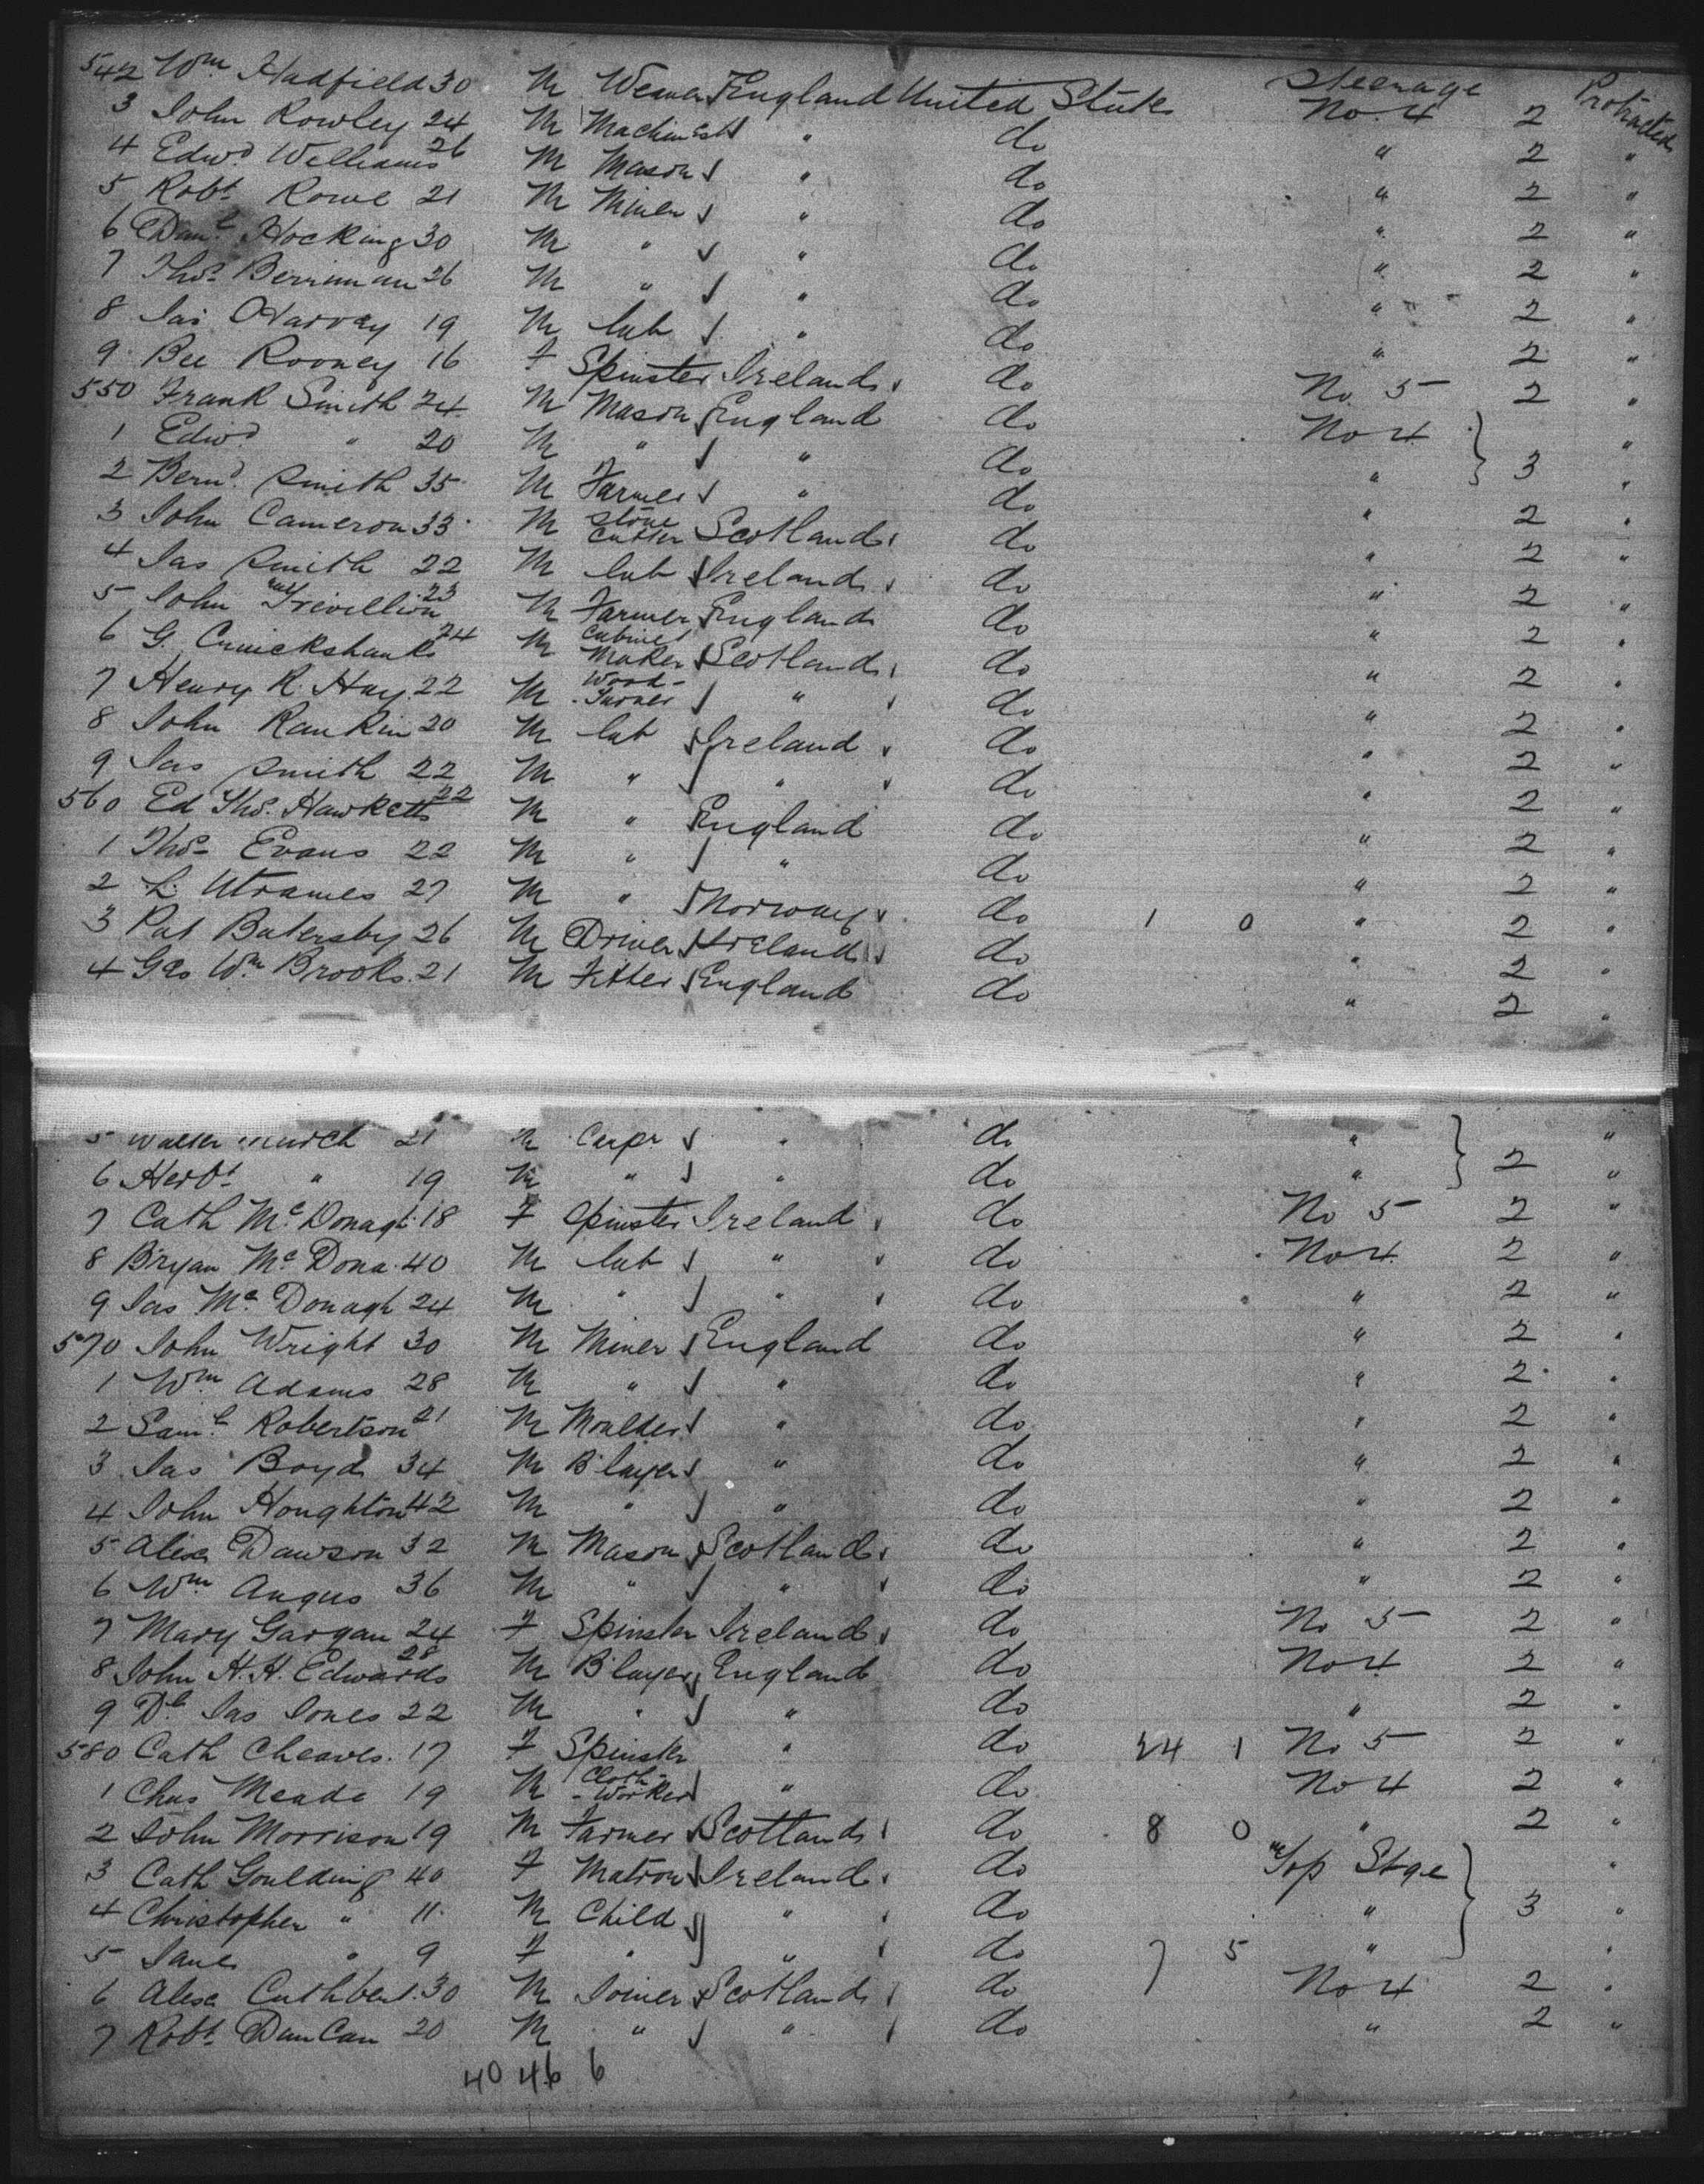 542 Wm Hadfield 30 M Weaver England United State Steerage No. 4 2 Protracted
3 John Rowley 24 M Machinist " do " 2 "
4 Edwd Williams 26 M Mason " do " 2 "
5 Robt Rowe 21 M Miner " do " 2 "
6 Danl Hocking 30 M " " do " 2 "
7 Thos Berriman 26 M " " do " 2 "
8 Jas Harvey 19 M lab " do " 2 "
9 Bee Rooney 16 F Spinster Ireland do No. 5 2 "
550 Frank Smith 24 M Mason England do No 4 "
1 Edwd " 20 M " " do " 3 "
2 Bernd Smith 35 M Farmer " do " 2 "
3 John Cameron 33 M Stone Cutter Scotland do " 2 "
4 Jas Smith 22 M lab Ireland do " 2 "
5 John Trevillion 23 M Farmer England do " 2 "
6 G. Cruickshanks 24 M Cabinet Maker Scotland do " 2 "
7 Henry R. Hay 22 M Wood-Turner " do " 2 "
8 John Rankin 20 M lab Ireland do " 2 "
9 Jas Smith 22 M " " do " 2 "
560 Ed Thos. Hawketts 22 M " England do " 2 "
1 Thos Evans 22 M " " do " 2 "
2 L. 27 M " Norway do 1 0 " 2 "
3 Pat Batersby 26 M Driver Ireland do " 2 "
4 Geo Wm Brooks 21 M Fitter England do " 2 "
5 Walter 21 M Carpr " do " "
6 Herbt " 19 M " " do " 2 "
7 Cath McDonagh 18 F Spinster Ireland do No 5 2 "
8 Bryan McDona 40 M lab " do No 4 2 "
9 Jas McDonagh 24 M " " do " 2 "
570 John Wright 30 M Miner England do " 2 "
1 Wm Adams 28 M " " do " 2 "
2 Saml Robertson 21 M Moulder " do " 2 "
3 Jas Boyd 34 M B'layer " do " 2 "
4 John Houghton 42 M " " do " 2 "
5 Alex Dawson 32 M Mason Scotland do " 2 "
6 Wm Angus 36 M " " do " 2 "
7 Mary Gargan 24 F Spinster Ireland do No 5 2 "
8 John H. H. Edwards 28 M B'layer England do No 4 2 "
9 Dl Jas Jones 22 M " " do " 2 "
580 Cath Cheaves 17 F Spinster " do 24 1 No 5 2 "
1 Chas Meade 19 M Cloth-Worker " do No 4 2 "
2 John Morrison 19 M Farmer Scotland do 8 0 " 2 "
3 Cath Goulding 40 F Matron Ireland do Top Stge "
4 Christopher " 11 M Child " do " 3 "
5 Jane " 9 F " " do 7 5 " "
6 Alex Cuthbert 30 M Joiner Scotland do No 4 2 "
7 Robt Duncan 20 M " " do " 2 "
40 46 6